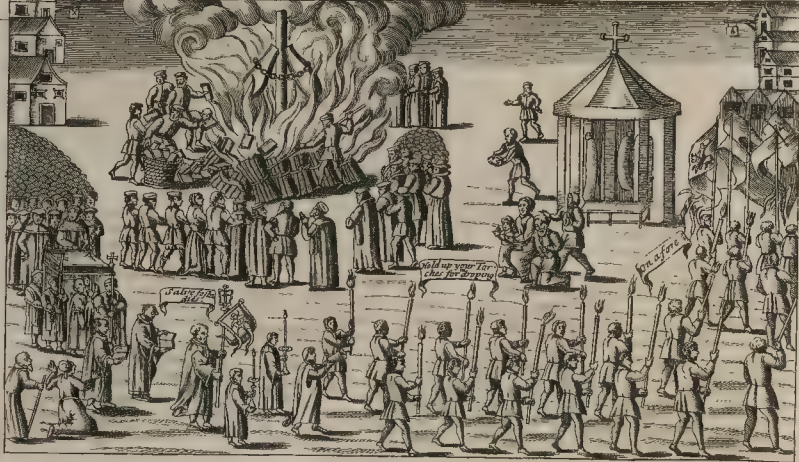 Salve festa
dies
Hold up your Tor
ches for Dropping
on afore